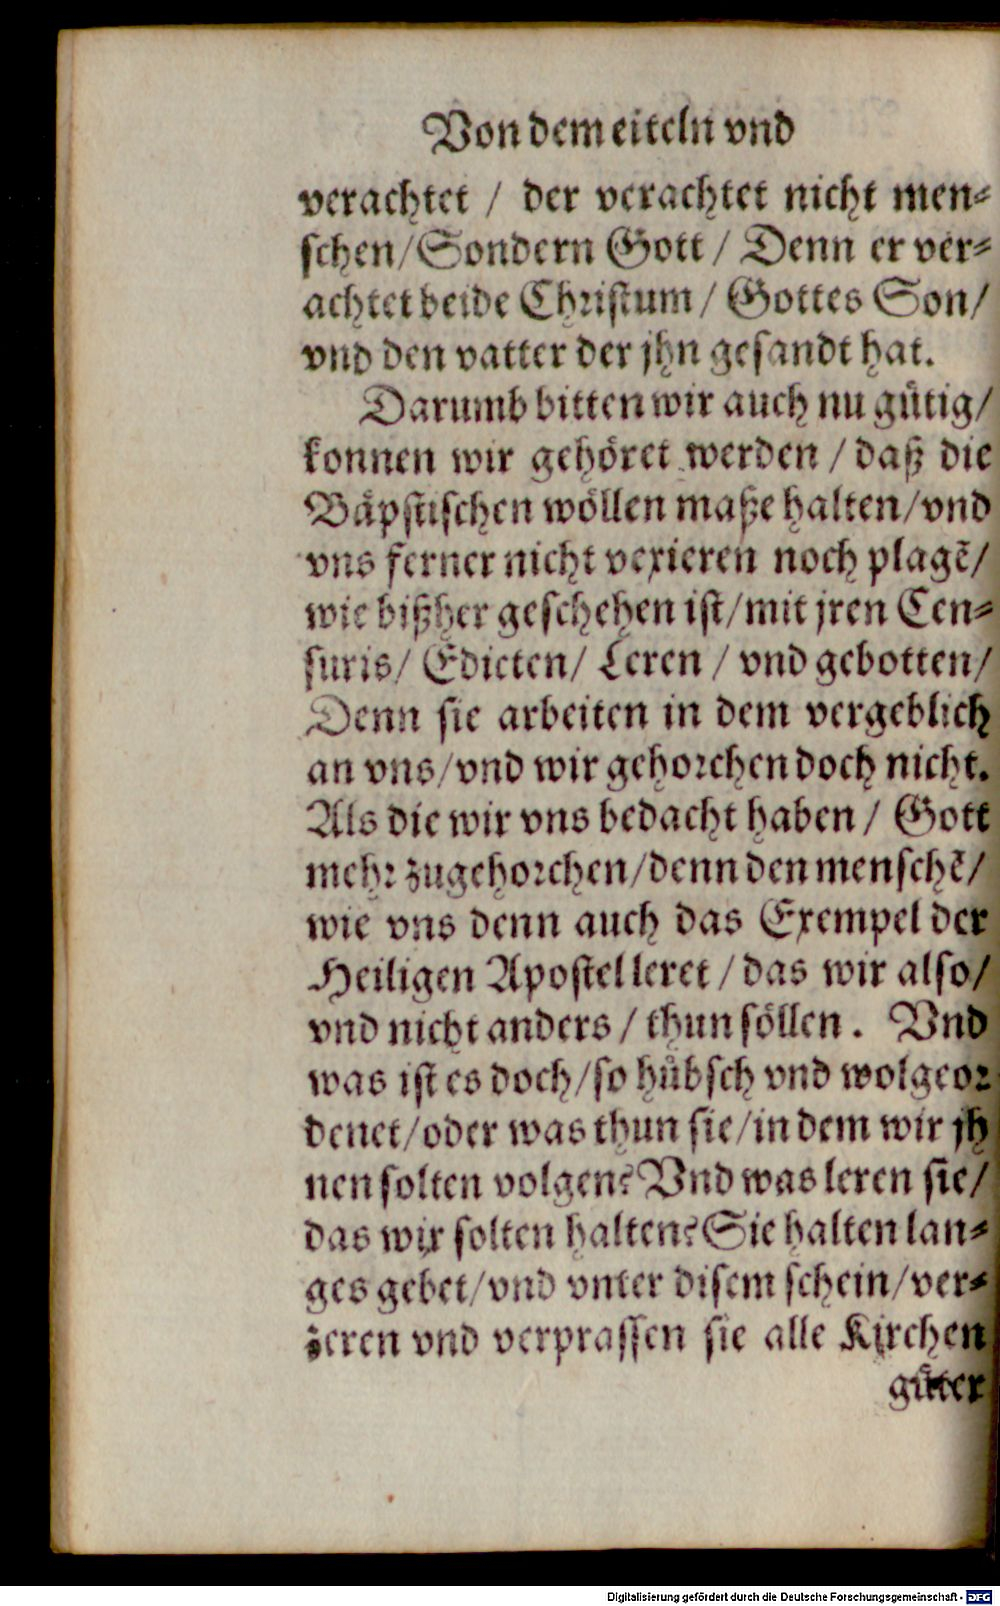 Von dem eiteln vnd
verachtet / der verachtet nicht men⸗
schen/Sondern Gott / Denn er ver⸗
achtet beide Christum / Gottes Son/
vnd den vatter der jhn gesandt hat.
Darumb bitten wir auch nu guͤtig/
konnen wir gehoͤret werden / daß die
Baͤpstischen woͤllen maße halten/vnd
vns ferner nicht vexieren noch plagẽ/
wie bißher geschehen ist/mit jren Cen⸗
suris/ Edicten/ Leren / vnd gebotten/
Denn sie arbeiten in dem vergeblich
an vns/vnd wir gehorchen doch nicht.
Als die wir vns bedacht haben / Gott
mehr zugehorchen/denn den menschẽ/
wie vns denn auch das Exempel der
Heiligen Apostel leret / das wir also/
vnd nicht anders / thun soͤllen. Vnd
was ist es doch/so huͤbsch vnd wolgeor
denet/oder was thun sie/in dem wir jh
nen solten volgen? Vnd was leren sie/
das wir solten halten? Sie halten lan⸗
ges gebet/vnd vnter disem schein/ver⸗
zeren vnd verprassen sie alle Kirchen
guͤter
Digitalisierung gefördert durch die Deutsche Forschungsgemeinschaft - DFG